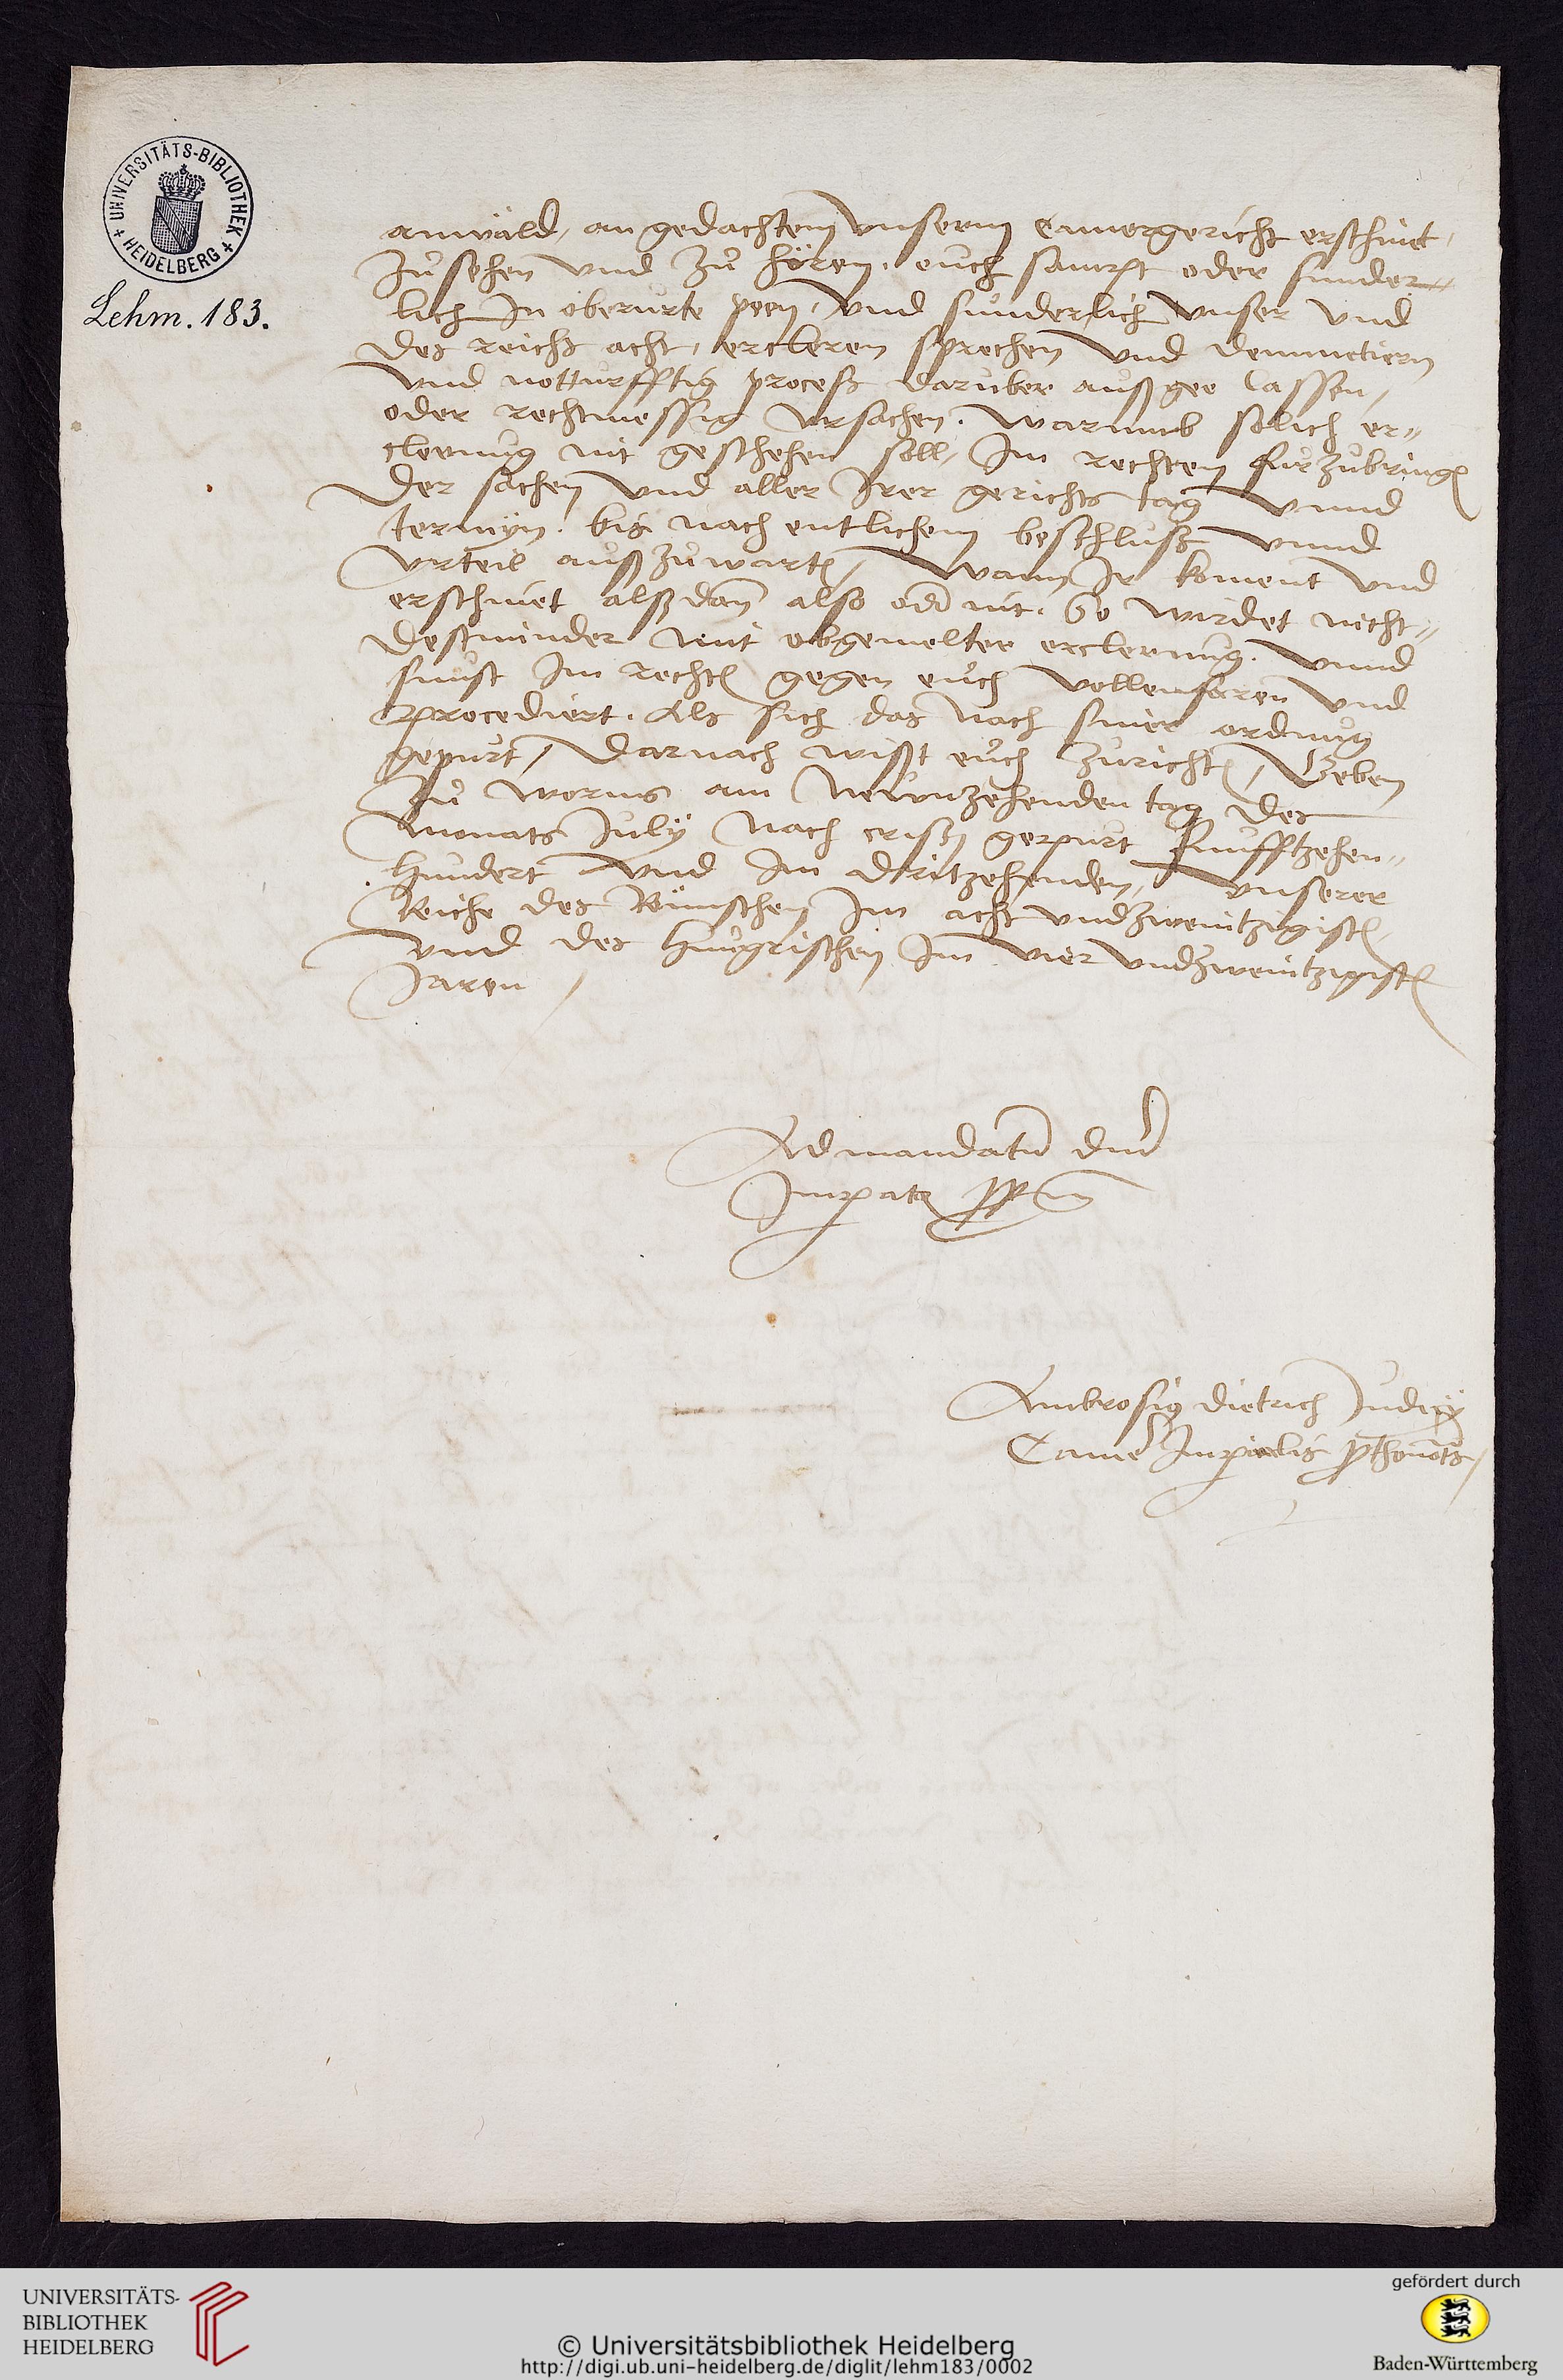 UNIVERSITÄTS-BIBLIOTHEK
+ HEIDELBERG +
Lehm. 183.
anwäld, an gedachtem unserm Camergericht erschinet,
Zu sehen und zu hören, euch sampt oder sunder-
lich In oberurte peen, und sunderlich unser und
des reichs acht, ercleren sprechen und denunctiern
und notturfftig proceß daruber außgee lassen,
oder rechtmessig ursachen, warumb solich er-
clerung nit geschehen soll, Im rechten furzubringen
Der sachen und aller Irer gerichts tag unnd
termyn, bis nach entlichem beschluß unnd
urteil außzuwarten, Wann Ir koment und
erschinet alßdan also oder nit, So wirdet nicht-
destminder mit obgemelter erclerung, unnd
sunst Im rechten gegen euch vollenfaren und
procediert, Als sich das nach siner ordnung
gepurt, Darnach wißt euch zurichten, Geben
Zu worms am Neünzehenden tag des
Monats July Nach cristi gepurt Funfftzehen-
hundert und Im dritzehenden, unserer
Reiche des Römschen Im acht undzweintzigisten,
und des Hungrischen Im vier undzweintzigisten
Jaren,
Ad mandatum dni
Imperatoris pprium
Ambrosig dietrich Judicy
Camere Imperialis prothonots,
UNIVERSITÄTS-
BIBLIOTHEK
HEIDELBERG
© Universitätsbibliothek Heidelberg
http://digi.ub.uni-heidelberg.de/diglit/lehm183/0002
gefördert durch
Baden-Württemberg